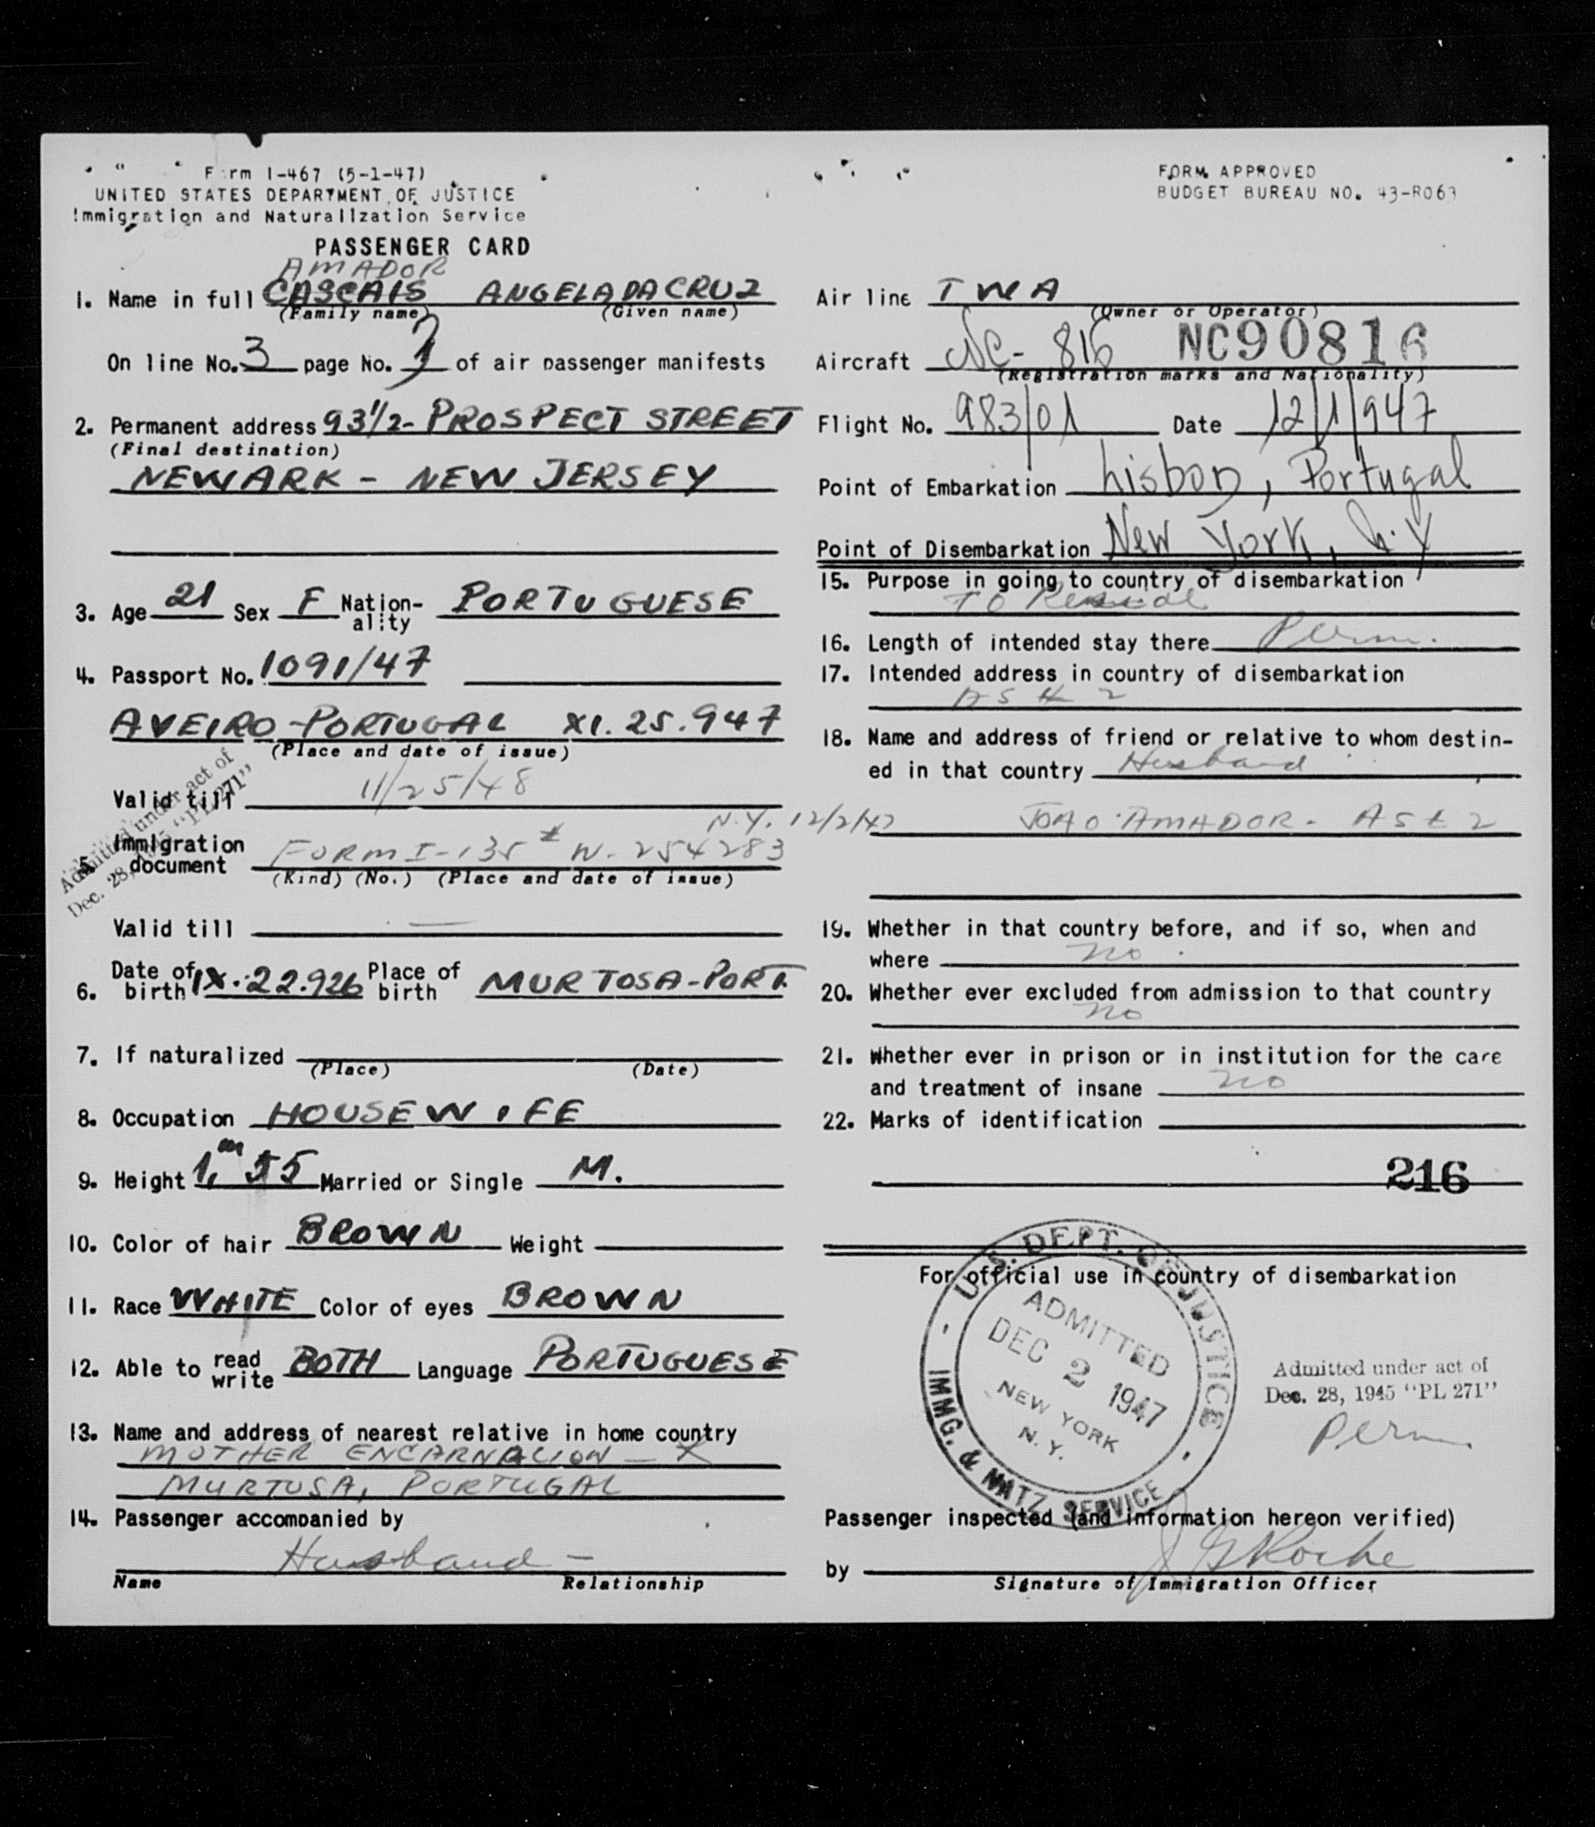 Form I-467 (5-1-47)
UNITED STATES DEPARTMENT OF JUSTICE
Immigration and Naturalization Service
PASSENGER CARD
AMADOR
1. Name in full CASCAIS ANGELA DA CRUZ
(Family name) (Given name)
On line No. 3 page No. 1 of air passenger manifests
2. Permanent address 93 1/2 - PROSPECT STREET
(Final destination)
NEWARK - NEW JERSEY
3. Age 21 Sex F Nationality PORTUGUESE
4. Passport No. 1091/47
AVEIRO - PORTUGAL XI.25.947
(Place and date of issue)
Valid till 11/25/48
Admitted under act of
Dec. 28, 1945 "PL 271"
N.Y. 12/2/47
5. Immigration document FORM I-135 # N-254283
(Kind) (No.) (Place and date of issue)
Valid till —
6. Date of birth IX.22.926 Place of birth MURTOSA-PORT.
7. If naturalized
(Place) (Date)
8. Occupation HOUSEWIFE
9. Height 1,m 55 Married or Single M.
10. Color of hair BROWN Weight
11. Race WHITE Color of eyes BROWN
12. Able to read write BOTH Language PORTUGUESE
13. Name and address of nearest relative in home country
MOTHER ENCARNACION - X
MURTOSA, PORTUGAL
14. Passenger accompanied by
Husband —
Name Relationship
FORM APPROVED
BUDGET BUREAU NO. 43-R063
Air line TWA
(Owner or Operator)
Aircraft NC-816 NC90816
(Registration marks and Nationality)
Flight No. 983/01 Date 12/1/947
Point of Embarkation Lisbon, Portugal
Point of Disembarkation New York, N.Y
15. Purpose in going to country of disembarkation
TO Reside
16. Length of intended stay there Perm.
17. Intended address in country of disembarkation
AS # 2
18. Name and address of friend or relative to whom destin-
ed in that country Husband
JOAO AMADOR - AS # 2
19. Whether in that country before, and if so, when and
where no
20. Whether ever excluded from admission to that country
no
21. Whether ever in prison or in institution for the care
and treatment of insane no
22. Marks of identification
216
For official use in country of disembarkation
U.S. DEPT. OF JUSTICE
ADMITTED
DEC 2 1947
NEW YORK
N. Y.
IMMG. & NATZ. SERVICE
Admitted under act of
Dec. 28, 1945 "PL 271"
Perm.
Passenger inspected (and information hereon verified)
by J G Roche
Signature of Immigration Officer